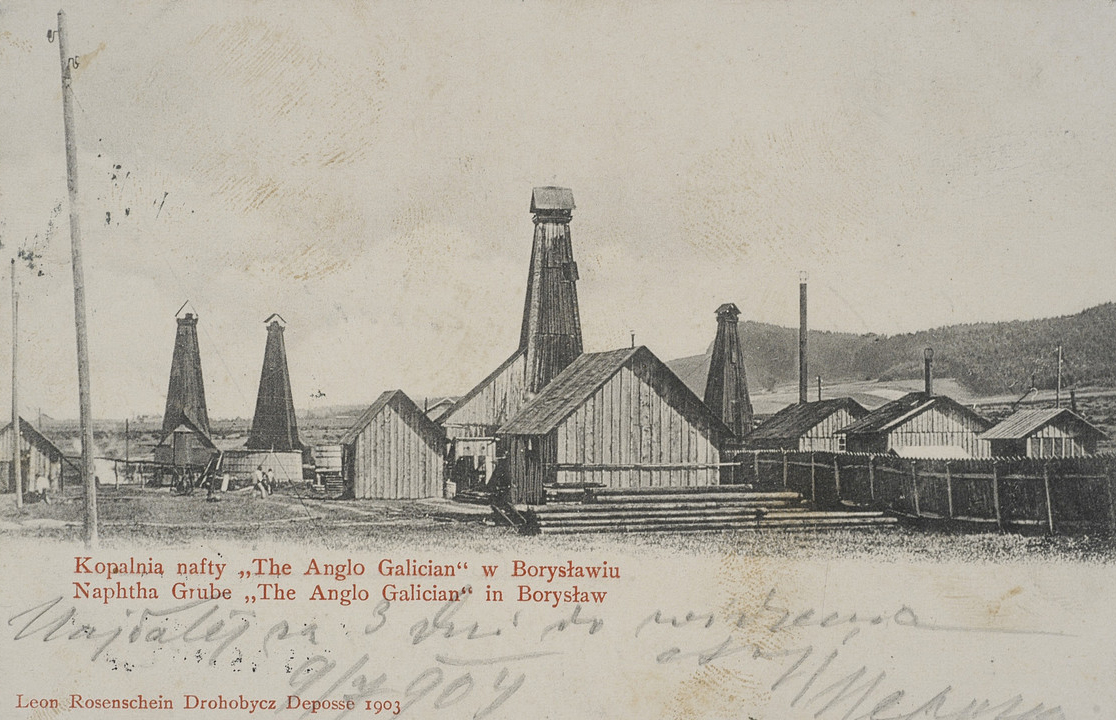 Kopalnia nafty „The Anglo Galician“ w Borysławiu
Naphtha Grube „The Anglo Galician“ in Borysław
Najdalej za 3 dni do widzenia
9/7 904
Leon Rosenschein Drohobycz Deposse 1903